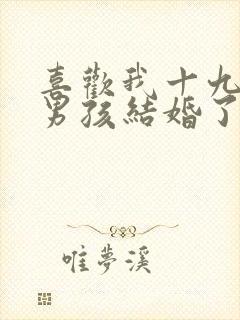 喜歡我十九
男孩結婚了
唯夢溪